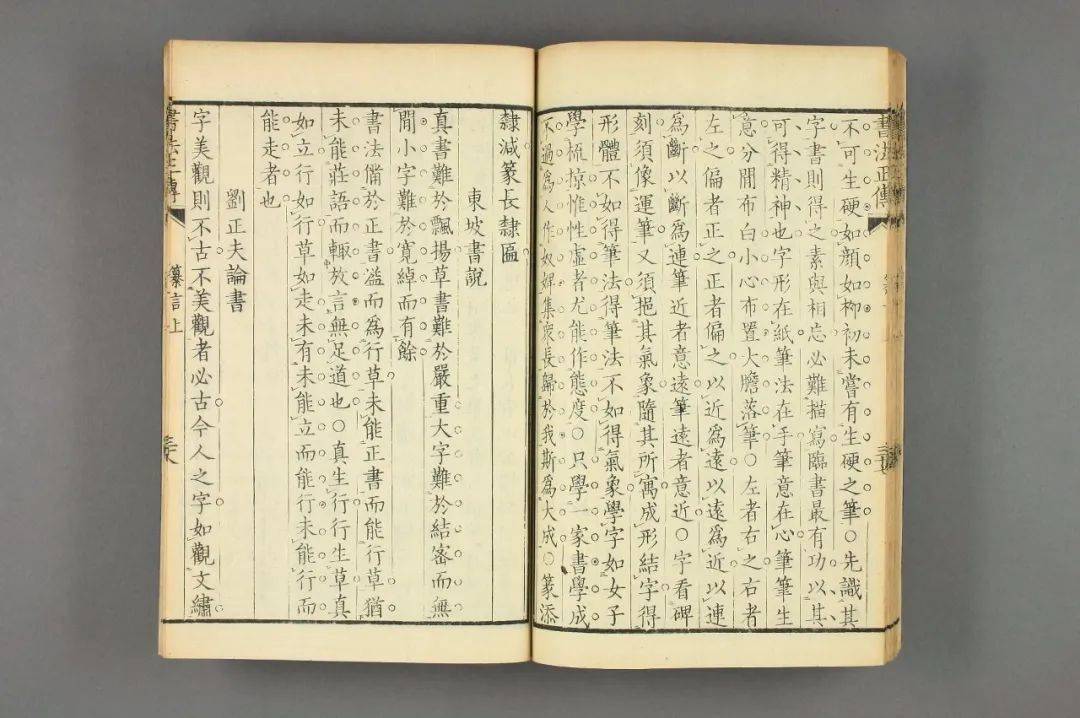 書法正傳
不可生硬如顔如柳初未嘗有生硬之筆○先識其
字書則得之素與相忘必難描寫臨書最有功以其
可得精神也字形在紙筆法在手筆意在心筆筆生
意分間布白小心布置大膽落筆○左者右之右者
左之偏者正之正者偏之以近爲遠以遠爲近以連
爲斷以斷爲連筆近者意遠筆遠者意近○字看碑
刻須像運筆又須挹其氣象隨其所寓成形結字得
形體不如得筆法得筆法不如得氣象學字如女子
學梳掠惟性虛者尤能作態度○只學一家書學成
不過爲人作奴婢集衆長歸於我斯爲大成○篆添
隸減篆長隸匾
東坡書説
真書難於飄揚草書難於嚴重大字難於結宻而無
間小字難於寛綽而有餘
書法備於正書溢而爲行草未能正書而能行草猶
未能莊語而輙放言無足道也○真生行行生草真
如立行如行草如走未有未能立而能行未能行而
能走者也
劉正夫論書
字美觀則不古不美觀者必古今人之字如觀文繡
書法正傳
纂言上
三六